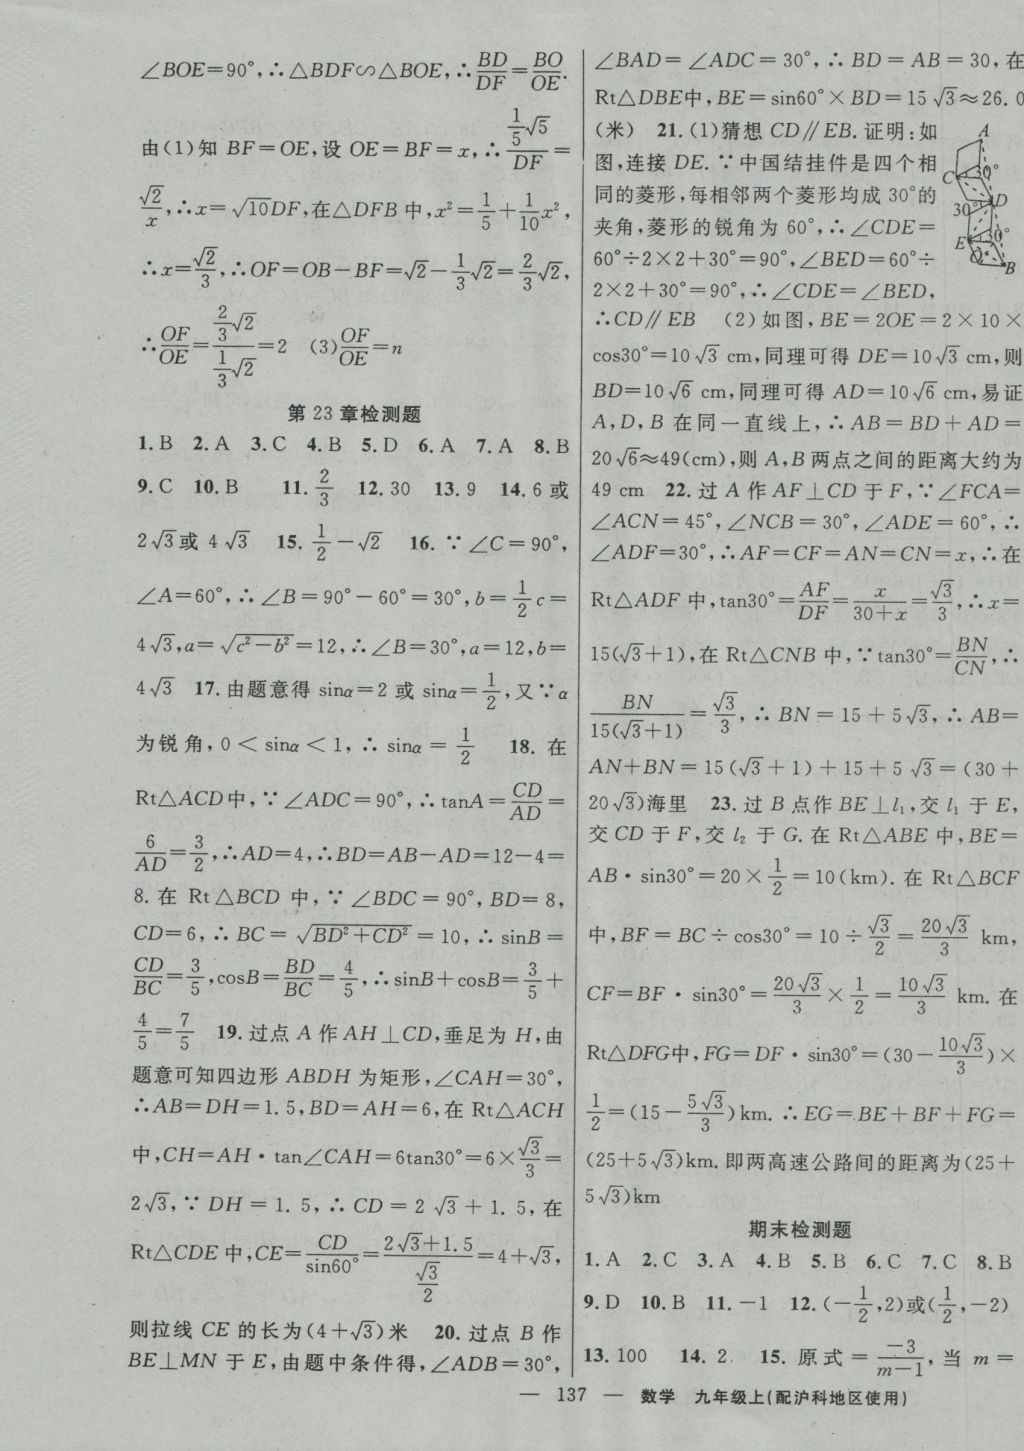 ∠BOE=90°,∴△BDF∽△BOE,∴BD/DF=BO/OE.
由(1)知 BF=OE,设 OE=BF=x,∴(1/5)√5/DF=
√2/x,∴x=√10DF,在△DFB 中,x²=1/5+1/10x²,
∴x=√2/3,∴OF=OB-BF=√2-1/3√2=2/3√2,
∴OF/OE=(2/3√2)/(1/3√2)=2 (3)OF/OE=n
第 23 章检测题
1. B 2. A 3. C 4. B 5. D 6. A 7. A 8. B
9. C 10. B 11. 2/3 12. 30 13. 9 14. 6 或
2√3或 4√3 15. 1/2-√2 16. ∵∠C=90°,
∠A=60°,∴∠B=90°-60°=30°,b=1/2c=
4√3,a=√(c²-b²)=12,∴∠B=30°,a=12,b=
4√3 17. 由题意得 sinα=2 或 sinα=1/2,又∵α
为锐角,0<sinα<1,∴sinα=1/2 18. 在
Rt△ACD中,∵∠ADC=90°,∴tanA=CD/AD=
6/AD=3/2,∴AD=4,∴BD=AB-AD=12-4=
8. 在 Rt△BCD 中,∵∠BDC=90°,BD=8,
CD=6,∴BC=√(BD²+CD²)=10,∴sinB=
CD/BC=3/5,cosB=BD/BC=4/5,∴sinB+cosB=3/5+
4/5=7/5 19. 过点 A 作 AH⊥CD,垂足为 H,由
题意可知四边形 ABDH 为矩形,∠CAH=30°,
∴AB=DH=1.5,BD=AH=6,在 Rt△ACH
中,CH=AH·tan∠CAH=6tan30°=6×√3/3=
2√3,∵DH=1.5,∴CD=2√3+1.5,在
Rt△CDE 中,CE=CD/sin60°=(2√3+1.5)/(√3/2)=4+√3,
则拉线 CE 的长为(4+√3)米 20. 过点 B 作
BE⊥MN 于 E,由题中条件得,∠ADB=30°,
∠BAD=∠ADC=30°,∴BD=AB=30,在
Rt△DBE中,BE=sin60°×BD=15√3≈26.0
(米) 21. (1)猜想 CD∥EB. 证明:如
图,连接 DE. ∵中国结挂件是四个相
同的菱形,每相邻两个菱形均成 30°的
夹角,菱形的锐角为 60°,∴∠CDE=
60°÷2×2+30°=90°,∠BED=60°÷
2×2+30°=90°,∴∠CDE=∠BED,
∴CD∥EB (2)如图,BE=2OE=2×10×
A
C
30°
30°
D
30°
E
O
B
cos30°=10√3 cm,同理可得 DE=10√3 cm,则
BD=10√6 cm,同理可得 AD=10√6 cm,易证
A,D,B 在同一直线上,∴AB=BD+AD=
20√6≈49(cm),则 A,B 两点之间的距离大约为
49 cm 22. 过 A 作 AF⊥CD 于 F,∵∠FCA=
∠ACN=45°,∠NCB=30°,∠ADE=60°,∴
∠ADF=30°,∴AF=CF=AN=CN=x,∴在
Rt△ADF 中,tan30°=AF/DF=x/(30+x)=√3/3,∴x=
15(√3+1),在 Rt△CNB 中,∵tan30°=BN/CN,∴
BN/(15(√3+1))=√3/3,∴BN=15+5√3,∴AB=
AN+BN=15(√3+1)+15+5√3=(30+
20√3)海里 23. 过 B 点作 BE⊥l₁,交 l₁ 于 E,
交 CD 于 F,交 l₂ 于 G. 在 Rt△ABE 中,BE=
AB·sin30°=20×1/2=10(km). 在 Rt△BCF
中,BF=BC÷cos30°=10÷√3/2=20√3/3 km,
CF=BF·sin30°=20√3/3×1/2=10√3/3 km. 在
Rt△DFG中,FG=DF·sin30°=(30-10√3/3)×
1/2=(15-5√3/3)km. ∴EG=BE+BF+FG=
(25+5√3)km. 即两高速公路间的距离为(25+
5√3)km
期末检测题
1. A 2. C 3. A 4. B 5. B 6. C 7. C 8. B
9. D 10. B 11. -1 12. (-1/2,2)或(1/2,-2)
13. 100 14. 2 15. 原式=-3/(m-1),当 m=
— 137 — 数学 九年级上(配沪科地区使用)